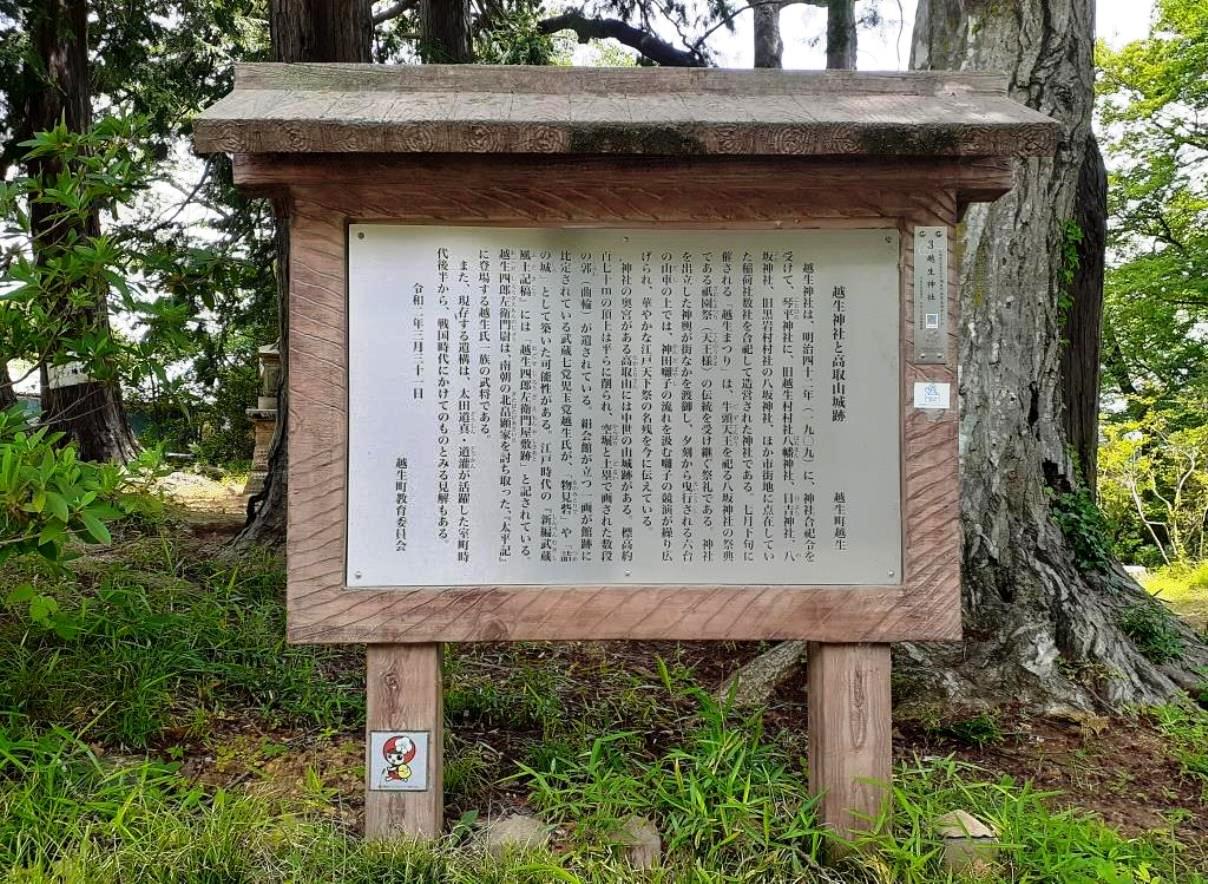 越生神社と高取山城跡
越生町越生
越生神社は、明治四十二年(一九〇九)に、神社合祀令を
受けて、琴平神社に、旧越生村村社八幡神社、日吉神社、八
坂神社、旧黒岩村村社の八坂神社、ほか市街地に点在してい
た稲荷社数社を合祀して造営された神社である。七月下旬に
催される「越生まつり」は、牛頭天王を祀る八坂神社の祭典
である祇園祭(天王様)の伝統を受け継ぐ祭礼である。神社
を出立した神輿が街なかを渡御し、夕刻から曳行される六台
の山車の上では、神田囃子の流れを汲む囃子の競演が繰り広
げられ、華やかな江戸天下祭の名残を今に伝えている。
神社の奥宮がある高取山には中世の山城跡がある。標高約
百七十mの頂上は平らに削られ、空堀と土塁で画された数段
の郭(曲輪)が遺されている。組会館が立つ一画が館跡に
比定されている武蔵七党児玉党越生氏が、「物見砦」や「詰
の城」として築いた可能性がある。江戸時代の『新編武蔵
風土記稿』には「越生四郎左衛門屋敷跡」と記されている。
越生四郎左衛門尉は、南朝の北畠顕家を討ち取った、『太平記』
に登場する越生氏一族の武将である。
また、現存する遺構は、太田道真・道灌が活躍した室町時
代後半から、戦国時代にかけてのものとみる見解もある。
令和二年三月三十一日
越生町教育委員会
3 越生神社